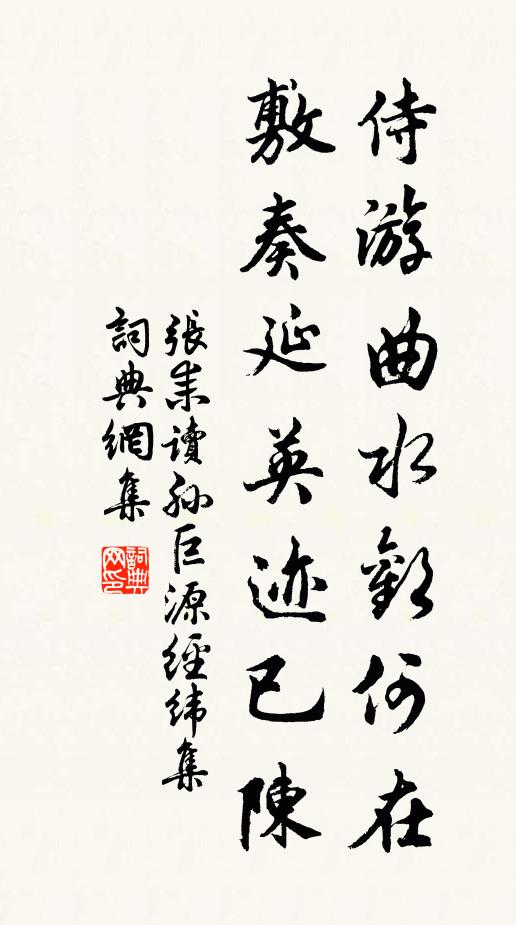 侍游曲水歡何在
敷奏延英迹已陳
張耒讀孫巨源經緯集
詞典網集
詞典網印